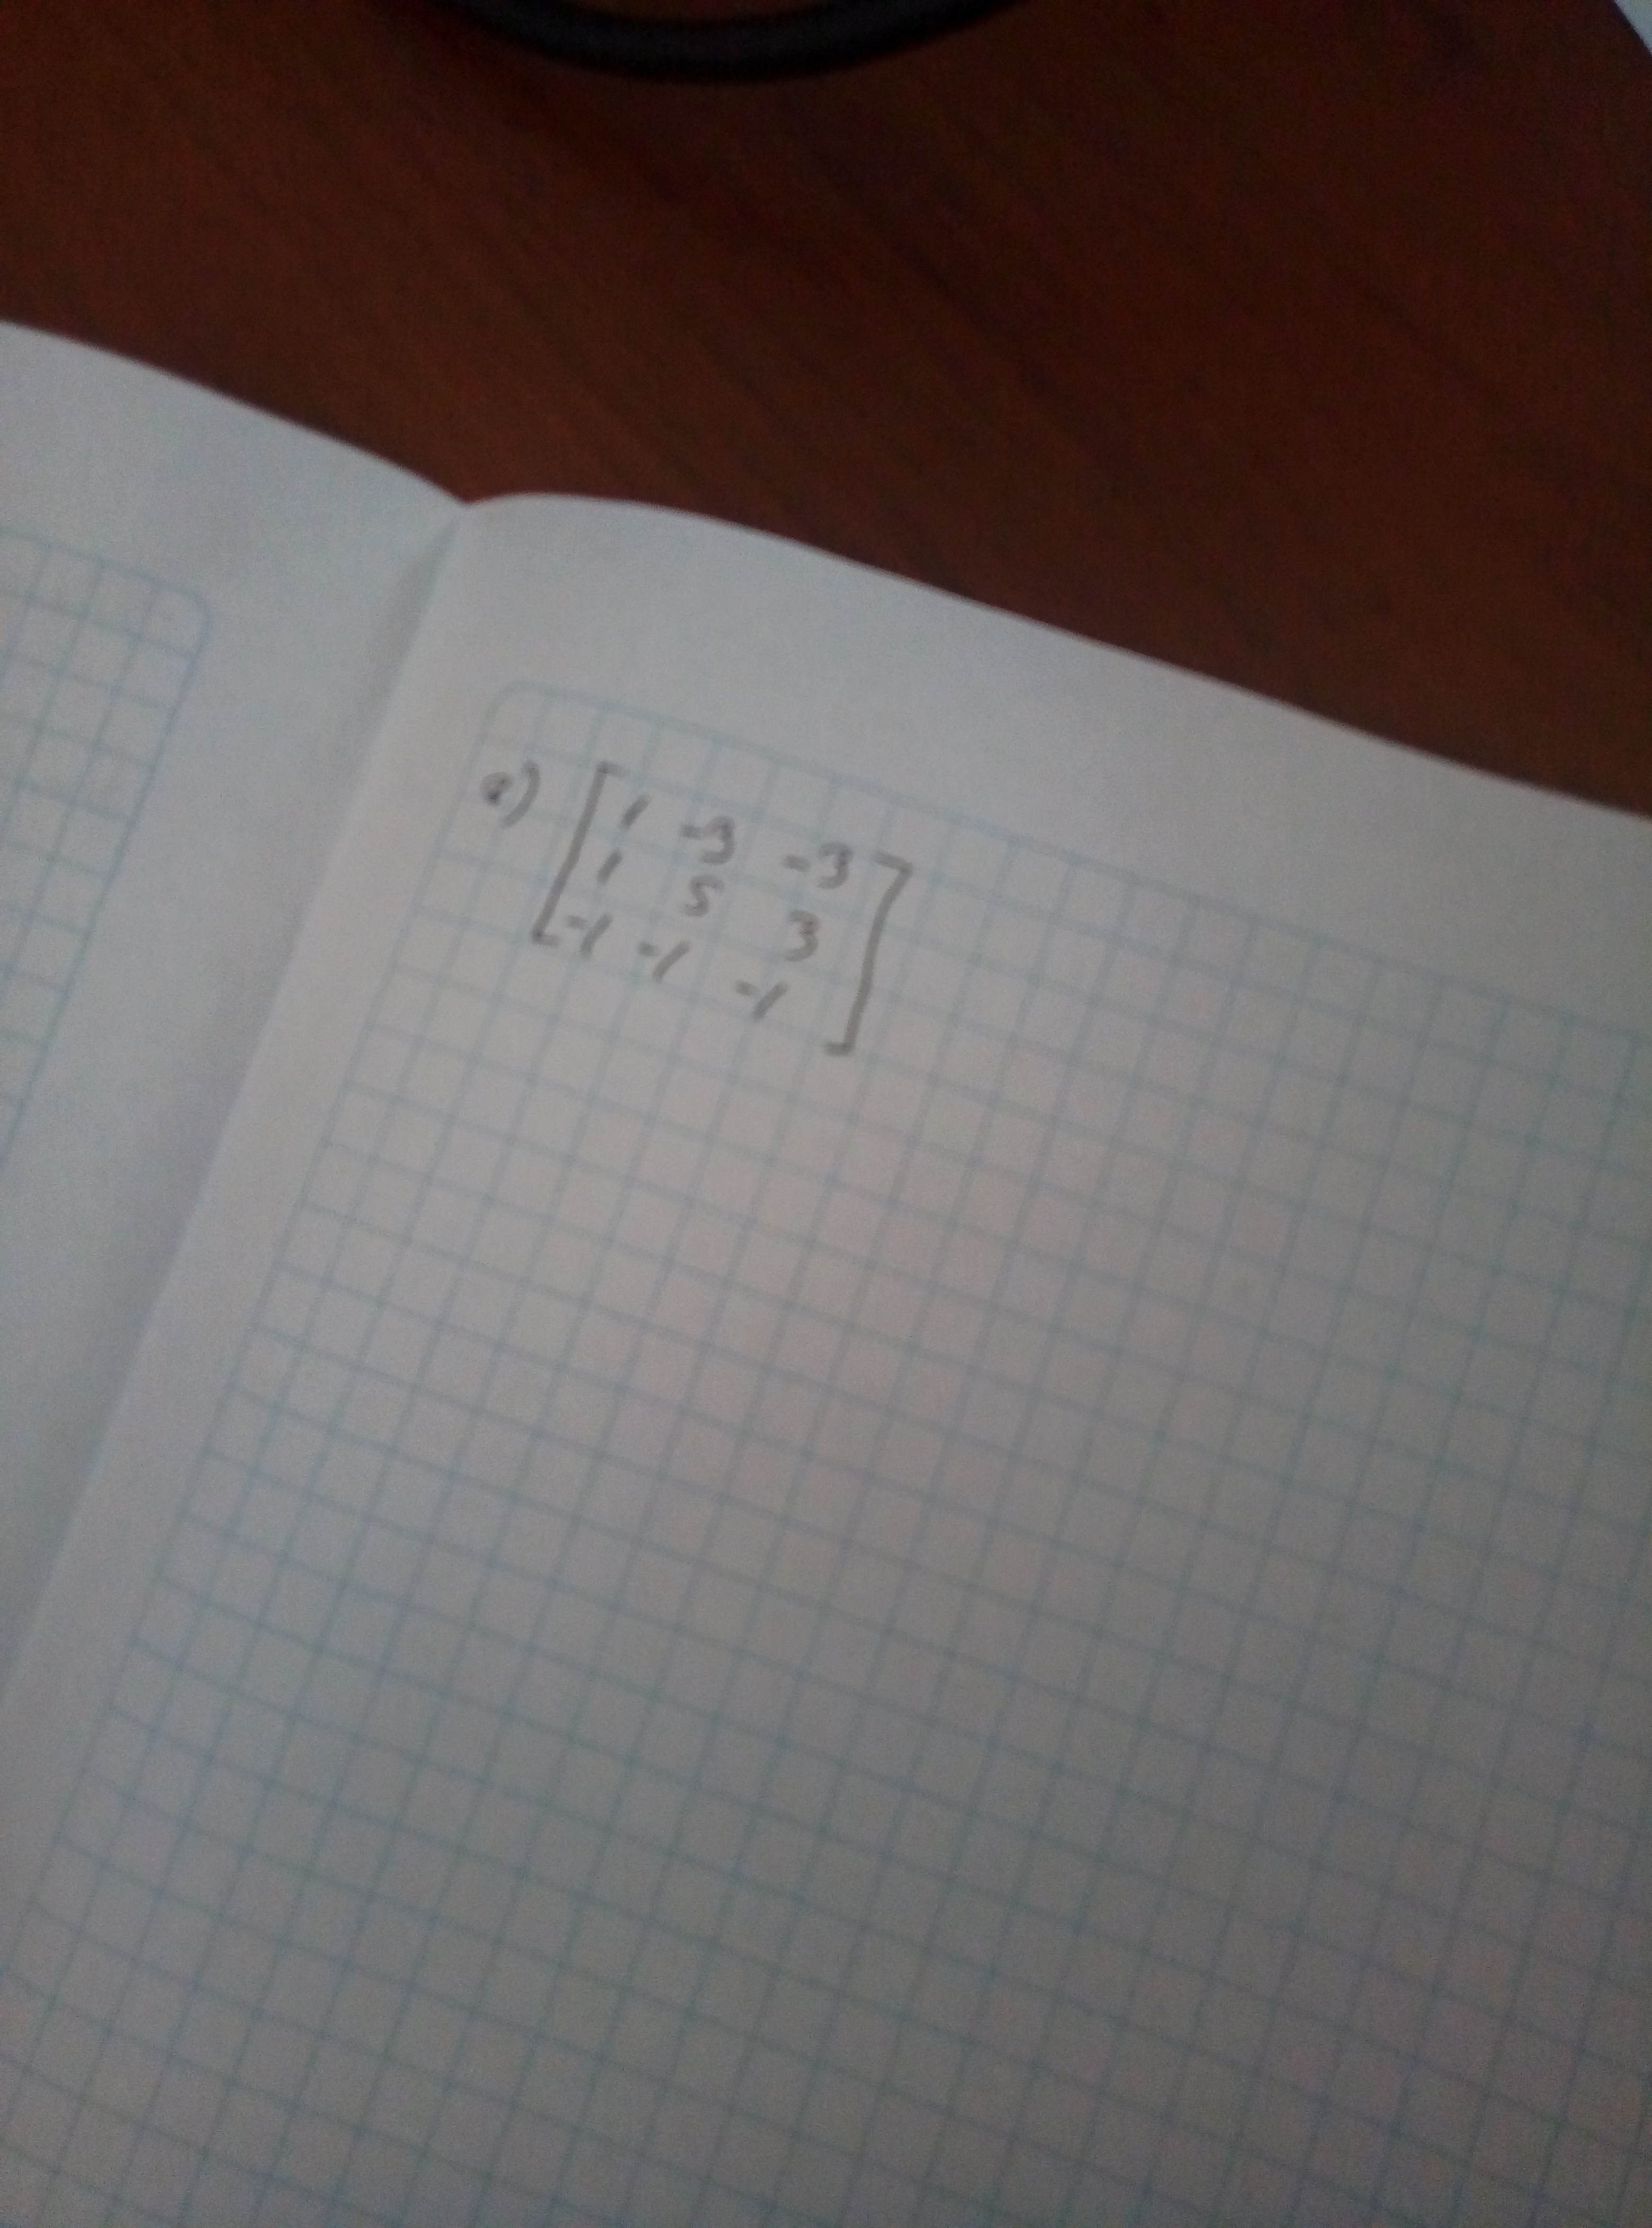 a) [ 1 -3 -3
1 5 3
-1 -1 -1 ]